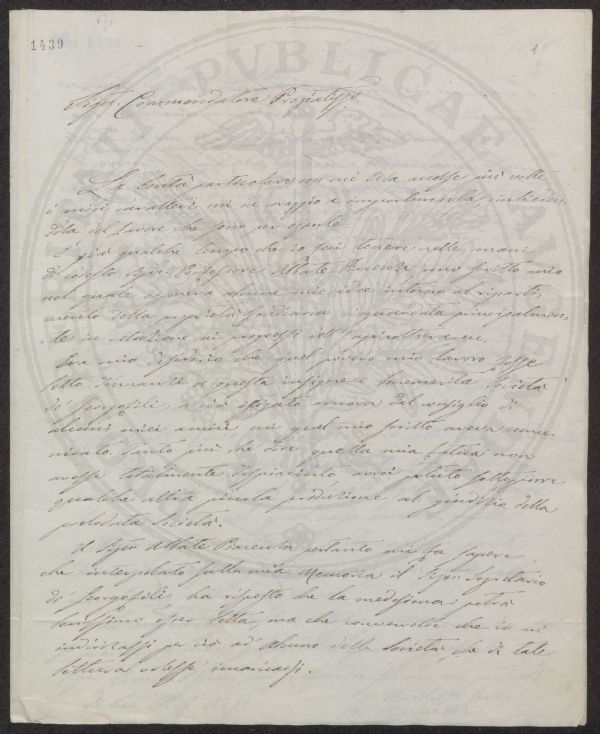 1439
1
Sigr. Commendatore
La bontà particolare con cui Ella accolse più volte
i miei caratteri mi dà coraggio a
del favore che sono per esporle.
È già qualche tempo che io feci tenere nelle mani
di Sigr. Professore Abate uno scritto mio
nel quale esponeva alcune mie idee intorno al riparti
mento della proprietà fondiaria, riguardata principalmen
te in relazione ai progressi dell'agricoltura
Era mio desiderio che quel povero mio lavoro fosse
letto dinnanzi a questa insigne e benemerita Società
de' Georgofili; a ciò ancora dal consiglio di
alcuni miei amici cui quel mio scritto aveva comu
nicato, tanto più che dove quella mia fatica non
avesse totalmente dispiaciuto avrei potuto sottoporre
qualche altra piccola produzione al giudizio della
prelodata Società.
Il Sigr. Abate pertanto mi fa sapere
che interpellato sulla mia Memoria il Sigr. Segretario
de' Georgofili, ha risposto che la medesima potrà
benissimo esser letta, ma che converrebbe che io mi
indirizzassi per ciò ad alcuno della Società che di tale
lettura volesse incaricarsi.